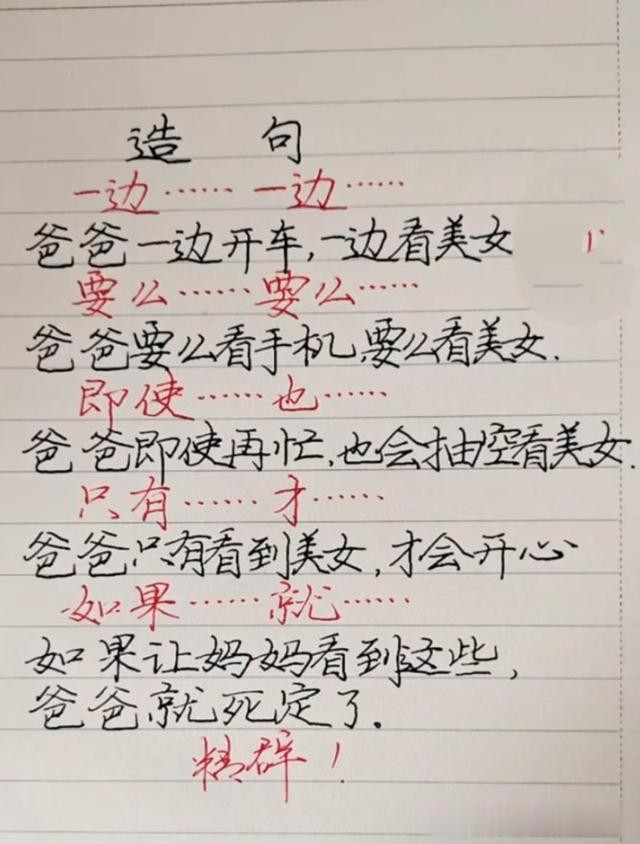 造 句
一边……一边……
爸爸一边开车,一边看美女
要么……要么……
爸爸要么看手机,要么看美女.
即使……也……
爸爸即使再忙,也会抽空看美女.
只有……才……
爸爸只有看到美女,才会开心
如果……就……
如果让妈妈看到这些,
爸爸就死定了.
精辟!